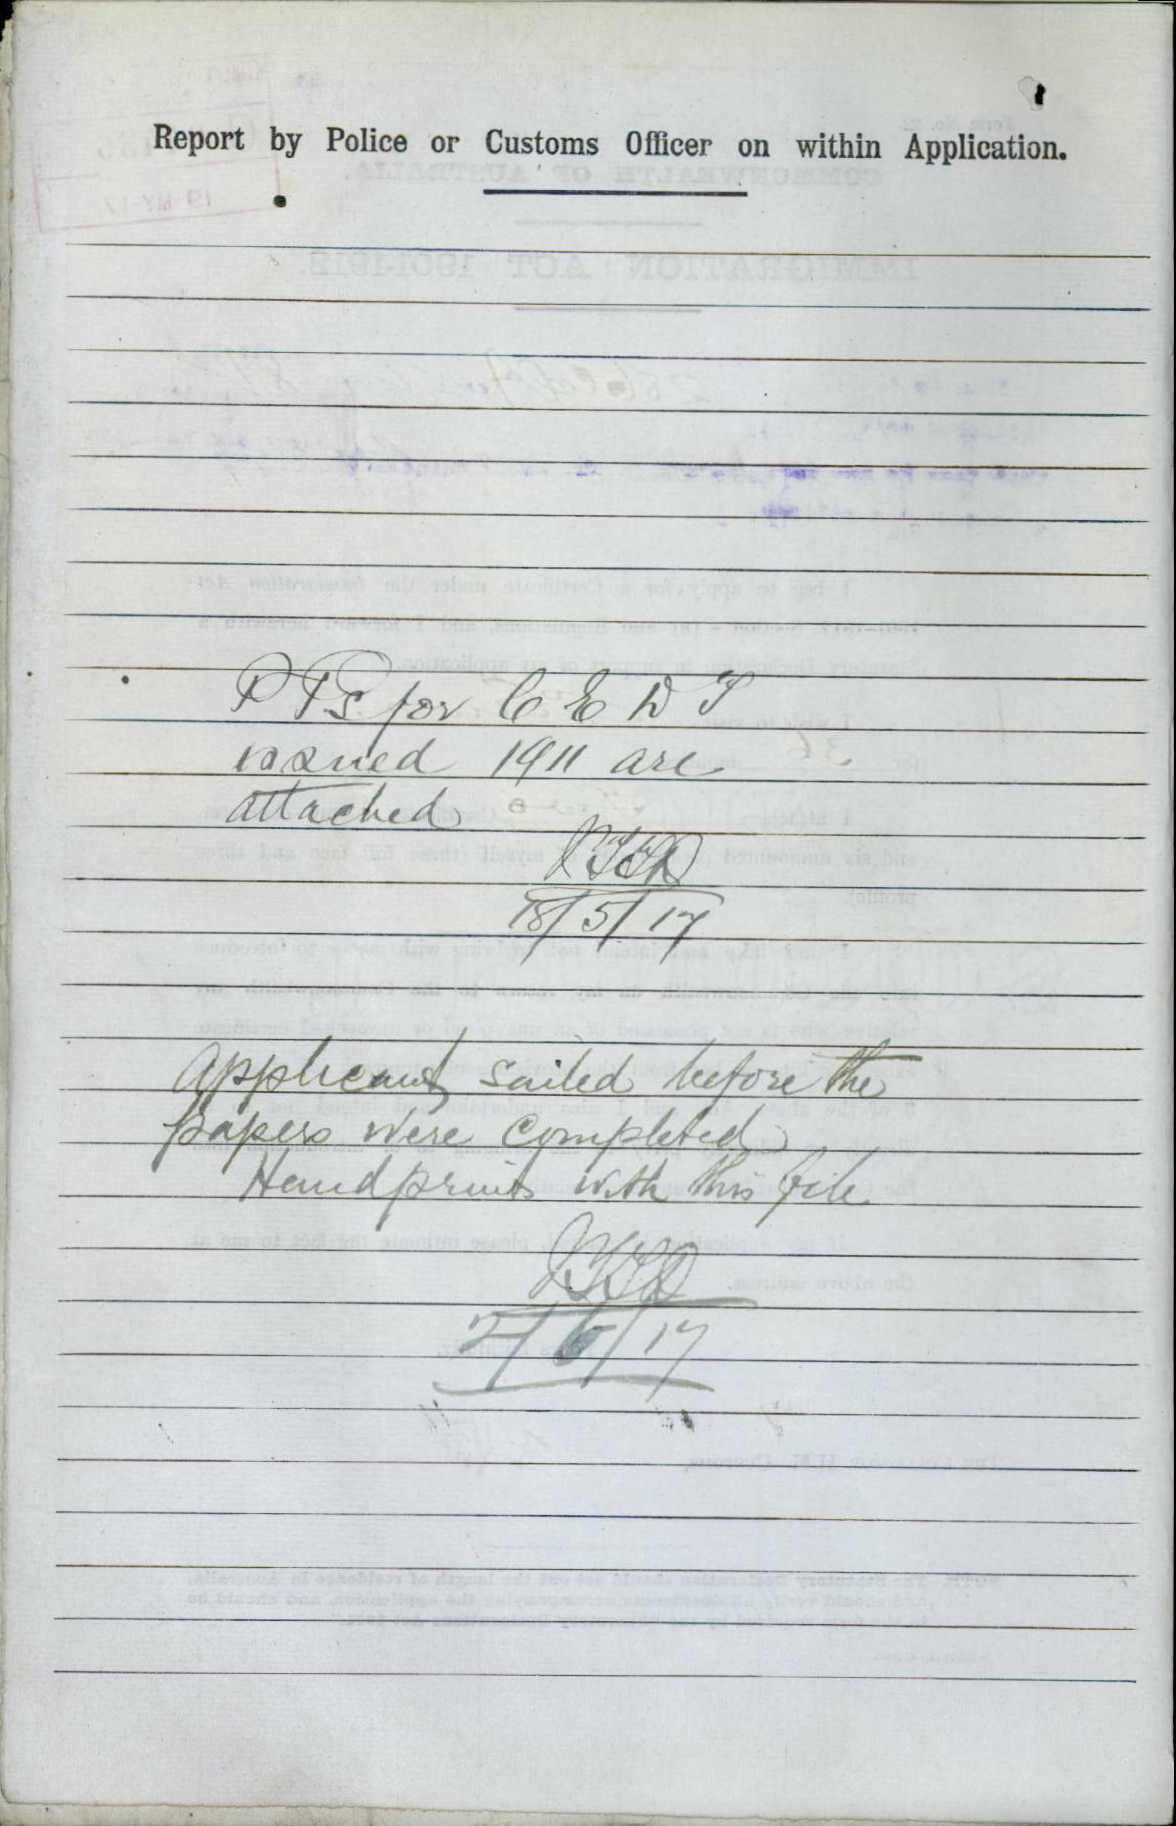 Report by Police or Customs Officer on within Application.
P Ts for C E D T
issued 1911 are
attached
18/5/17
Applicant sailed before the
papers were completed
Handprints with this file.
2/6/17